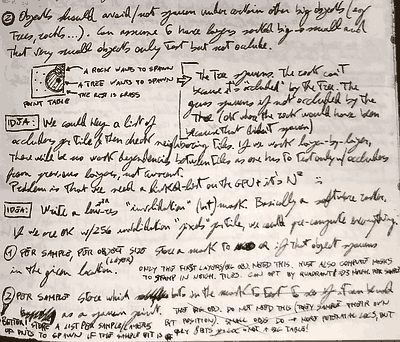 ② Objects should avoid/not spawn under certain other big objects (eg
Trees, rocks...). Can assume 6 have layers sorted big → small and
that very small objects only test but not occlude.
→ A ROCK WANTS TO SPAWN
→ A TREE WANTS TO SPAWN
→ THE REST IS GRASS
POINT TABLE
The Tree spawns. The rock can't
because it's "occluded" by the Tree. The
grass spawns if not occluded by the
Tree (not the rock would have been
because that didn't spawn)
IDEA: We could keep a list of
occluders per tile & then check neighboring tiles. If we work layer-by-layer,
There will be no work dependencies between tiles as one has to test only w/ occluders
from previous layers, not current.
Problem is that we need a linked-list on the GPU + it's N²
IDEA: Write a low-res "invalidation" (bit) mask. Basically a software raster.
If we are ok w/ 256 invalidation "pixels" per tile, we could pre-compute everything.
① PER SAMPLE, PER OBJECT SIZE (LAYER) Store a mask to or: if that object spawns
in the given location.
ONLY THE FIRST LAYERS/BIG OBJ NEED THIS. MUST ALSO COMPUTE MASKS
TO STAMP IN NEIGH. TILES. CAN OPT BY QUADRANT: MASKS PER SAMPLE
② PER SAMPLE store which bits in the mask to test to see if it can be used
as a spawn point.
THE BIG OBJ. DO NOT NEED THIS (THEY SAMPLE THEIR OWN
BIT POSITION). SMALL OBJS DO → MORE POTENTIAL LOCS, BUT
ONLY 8 BITS PER LOC → NOT A BIG TABLE!
BETTER! STORE A LIST PER SAMPLE/LAYERS
OF PNTS TO SPAWN IF THE SAMPLE BIT IS